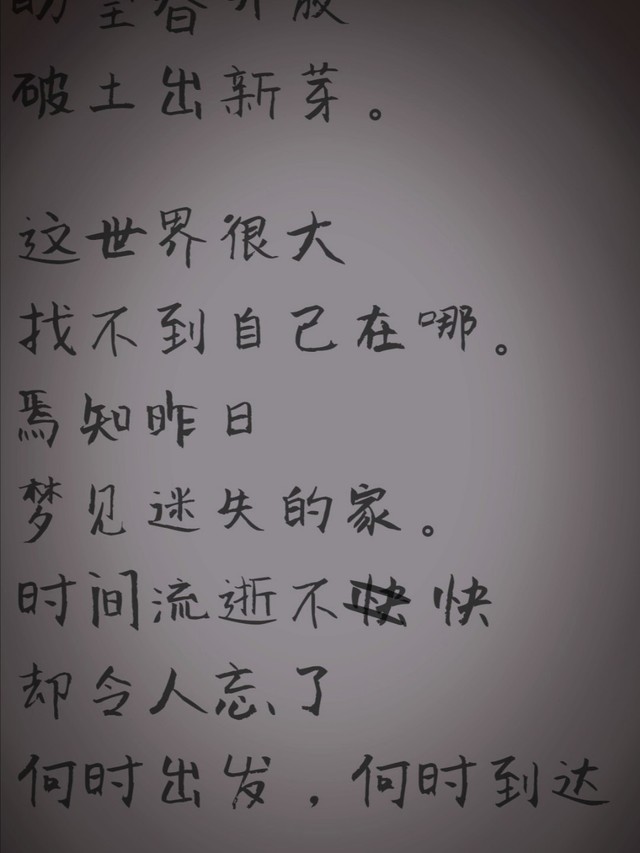 破土出新芽。
这世界很大
找不到自己在哪。
焉知昨日
梦见迷失的家。
时间流逝不快
却令人忘了
何时出发，何时到达